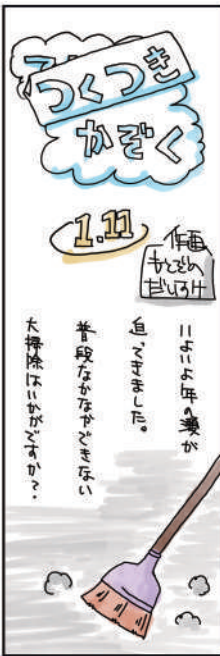 つくつき
かぞく
1.11
作画
もとぞの
だいすけ
いよいよ年の瀬が
迫ってきました。
普段なかなかできない
大掃除はいかがですか?